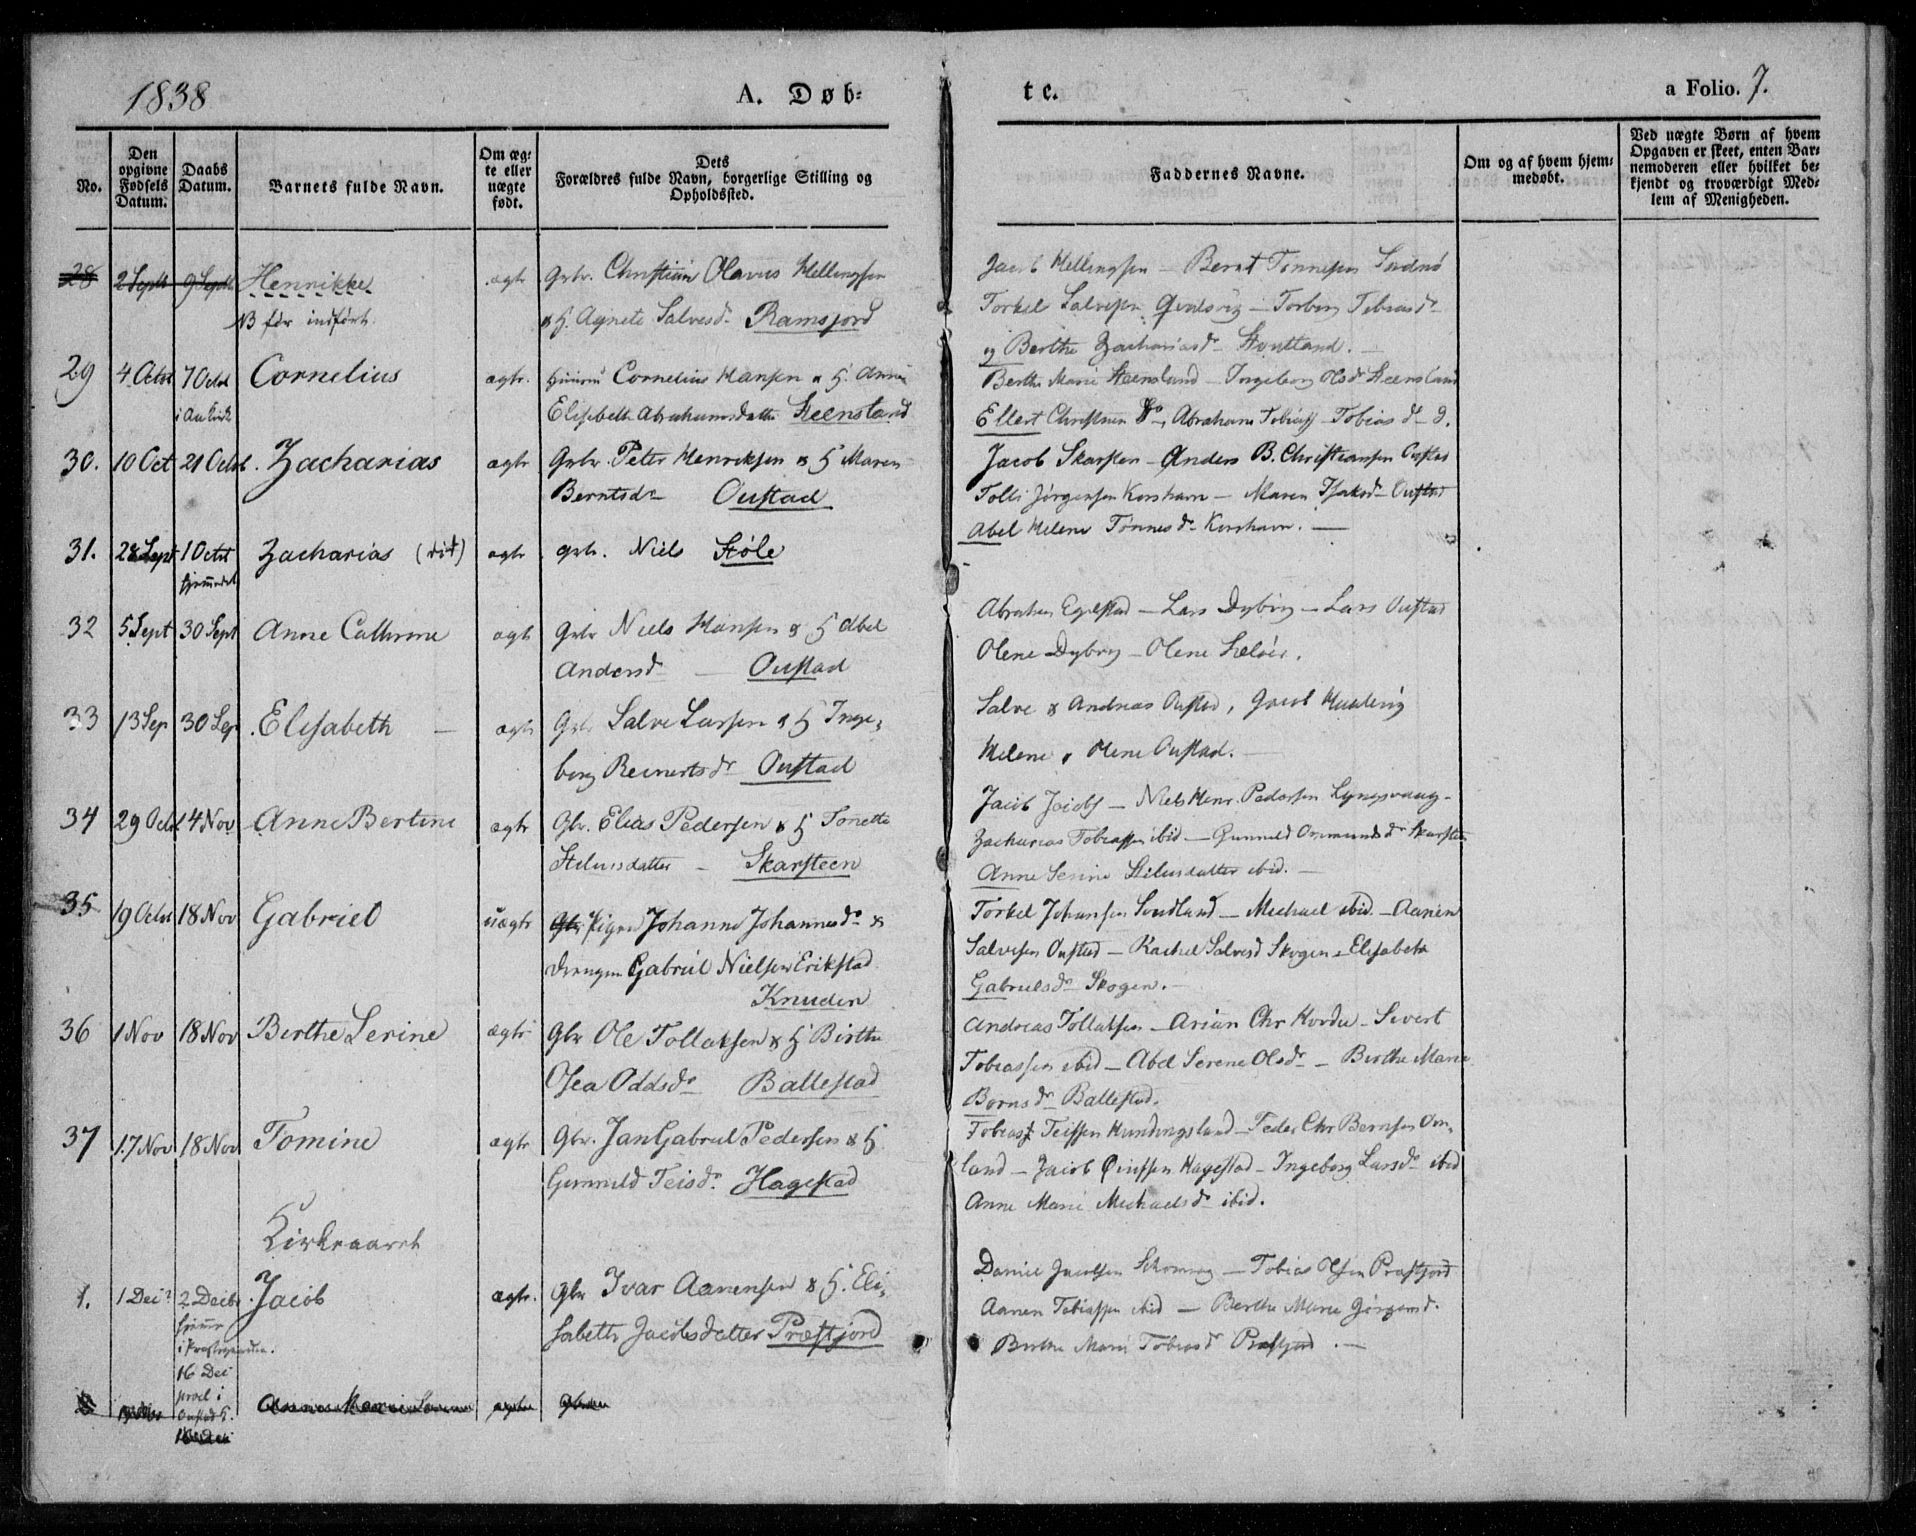 1838
A. Døb-
te.
a Folio. 7.
No.
Den opgivne Fødsels Datum.
Daabs Datum.
Barnets fulde Navn.
Om ægte eller uægte født.
Dets Forældres fulde Navn, borgerlige Stilling og Opholdssted.
Faddernes Navne.
Om og af hvem hjemmedøbt.
Ved uægte Børn af hvem Opgaven er skeet, enten Barnemoderen eller hvilket bekjendt og troværdigt Medlem af Menigheden.
28 2 Sept 9 Sept Henrikke ægte Gbr. Christian Olavus Hellingsen
NB før indført.
& H. Agnete Salvesd. Ramsjord
Jacob Hellingsen — Bernt Tønnesen
Torkel Salvesen — Torborg Tobiasd.
og Berthe Zachariasd.
29 4 Octr 7 Octr Cornelius ægte. Cornelius Hansen & H. Anne
Elisabeth Abrahamsdatter Steensland
Berthe Marie Steensland — Ingeborg Olsd. Steensland
Ellert Christensen Do, Abraham Tobiass — Tobias
30. 10 Oct 21 Octr. Zacharias ægte Gbr. Peter Henriksen & H Maren
Berntsd. Oustad
Jacob Skarsten — Anders B. Christiansen Oustad
Jørgensen Korshavn — Maren Isaksd. Oustad
Abel Helene Tønnesd. Korshavn. —
31. 28 Sept 1 Octr Zacharias ægte gbr. Niels Støle
hjemmedøbt
32 5 Sept 30 Sept Anne Cathrine ægte Gbr Niels Hansen & H Abel
Andersd. — Oustad
Abraham Egelstad — Lars Dybing — Lars Oustad
Olene Dybing — Olene
33 13 Sep 30 Sep. Elisabeth — ægte Gbr Salve Larsen & H Inge-
borg Reinertsd. Oustad
Salve & Andreas Oustad, Jacob
Helene & Olene Oustad. —
34 29 Octr 4 Nov Anne Bertine ægte Gbr. Elias Pedersen & H Tonette
Stelusdatter — Skarsteen
Jacob Jacobs — Niels Henr. Pedersen Lyngsvaag —
Zacharias Tobiassen ibid — Gunnild Ommundsd. Skarsten
Anne Serine Stelusdatter ibid. —
35 19 Octr 18 Nov Gabriel uægte Pigen Johanne Johannesd. &
drengen Gabriel Nielsen Erikstad
Knuden
Torkel Johansen — Michael ibid — Aanen
Salvesen Oustad — Rachel Salvesd Skogen — Elisabeth
Gabrielsd. Skogen. —
36 1 Nov 18 Nov Berthe Serine ægte Gbr Ole Tollaksen & H Birthe
Osea Oddsd. Ballestad
Andreas Tollaksen — Arian Chr — Sivert
Tobiassen ibid — Abel Serene Olsd. — Berthe Marie
Bornsd. Ballestad.
37 17 Nov 18 Nov Tomine ægte Gbr. Jan Gabriel Pedersen & H
Gunnild Teisd. Hagestad
Tobias Teissen Hundingsland — Peder Chr Bernsen Om-
land — Jacob Hagestad — Ingeborg Larsd. ibid
Anne Marie Michaelsd. ibid.
Kirkeaaret
1. 1 Dec 2 Decbr Jacob ægte. Gbr Ivar Aanensen & H. Eli-
sabeth Jacobsdatter Præstjord
hjemme
16 Dec
i Oustad K.
Daniel Jacobsen — Tobias Olsen Præstjord
Aanen Tobiassen ibid — Berthe Marie Jørgensd.
Berthe Marie Tobiasd Præstjord. —